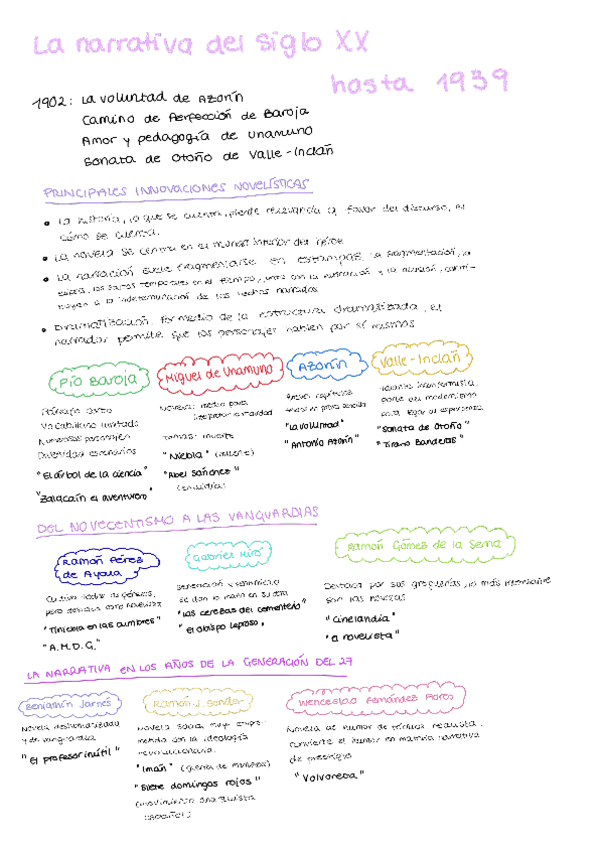 La narrativa del siglo XX
hasta 1939
1902: La voluntad de Azorín
Camino de Perfección de Baroja
Amor y pedagogía de Unamuno
Sonata de Otoño de Valle-Inclán
PRINCIPALES INNOVACIONES NOVELÍSTICAS
La historia, lo que se cuenta, pierde relevancia a favor del discurso, el
cómo se cuenta.
La novela se centra en el mundo interior del héroe
La narración suele fragmentarse en estampas. La fragmentación, la
elipsis, los saltos temporales en el tiempo, junto con la y la alusión, contri-
buyen a la indeterminación de los hechos narrados.
Dramatización. Por medio de la estructura dramatizada, el
narrador permite que los personajes hablen por sí mismos
Pío Baroja
Miguel de Unamuno
AZORÍN
Valle-Inclán
Párrafo corto
Vocabulario limitado
Numerosos personajes
Diversidad escenarios
"El árbol de la ciencia"
"Zalacaín el aventurero"
Novela: medio para
interpretar la realidad
Temas: muerte
"Niebla" (muerte)
"Abel Sánchez"
(envidia)
Breves capítulos
en prosa sencilla
"La voluntad"
"Antonio Azorín"
parte del modernismo
para llegar al esperpento
"Sonata de Otoño"
"Tirano Banderas"
DEL NOVECENTISMO A LAS VANGUARDIAS
Ramón Pérez
de Ayala
Gabriel Miró
Ramón Gómez de la Serna
Cultiva todos los géneros,
pero destaca como novelista
"Tinieblas en las cumbres"
"A.M.D.G."
Sensación y sentimiento
se dan la mano en su obra
"Las cerezas del cementerio"
"El obispo leproso"
Destaca por sus greguerías, lo más interesante
son las novelas
"Cinelandia"
"La novelista"
LA NARRATIVA EN LOS AÑOS DE LA GENERACIÓN DEL 27
Benjamín Jarnés
Ramón J. Sender
Wenceslao Fernández Flórez
Novela deshumanizada
y de vanguardia
"El profesor inútil"
Novela social muy compro-
metida con la ideología
revolucionaria.
"Imán" (guerra de Marruecos)
"Siete domingos rojos"
(movimiento anarquista
español)
Novela de humor de técnica realista.
Convierte el humor en materia narrativa
de prestigio
"Volvoreta"